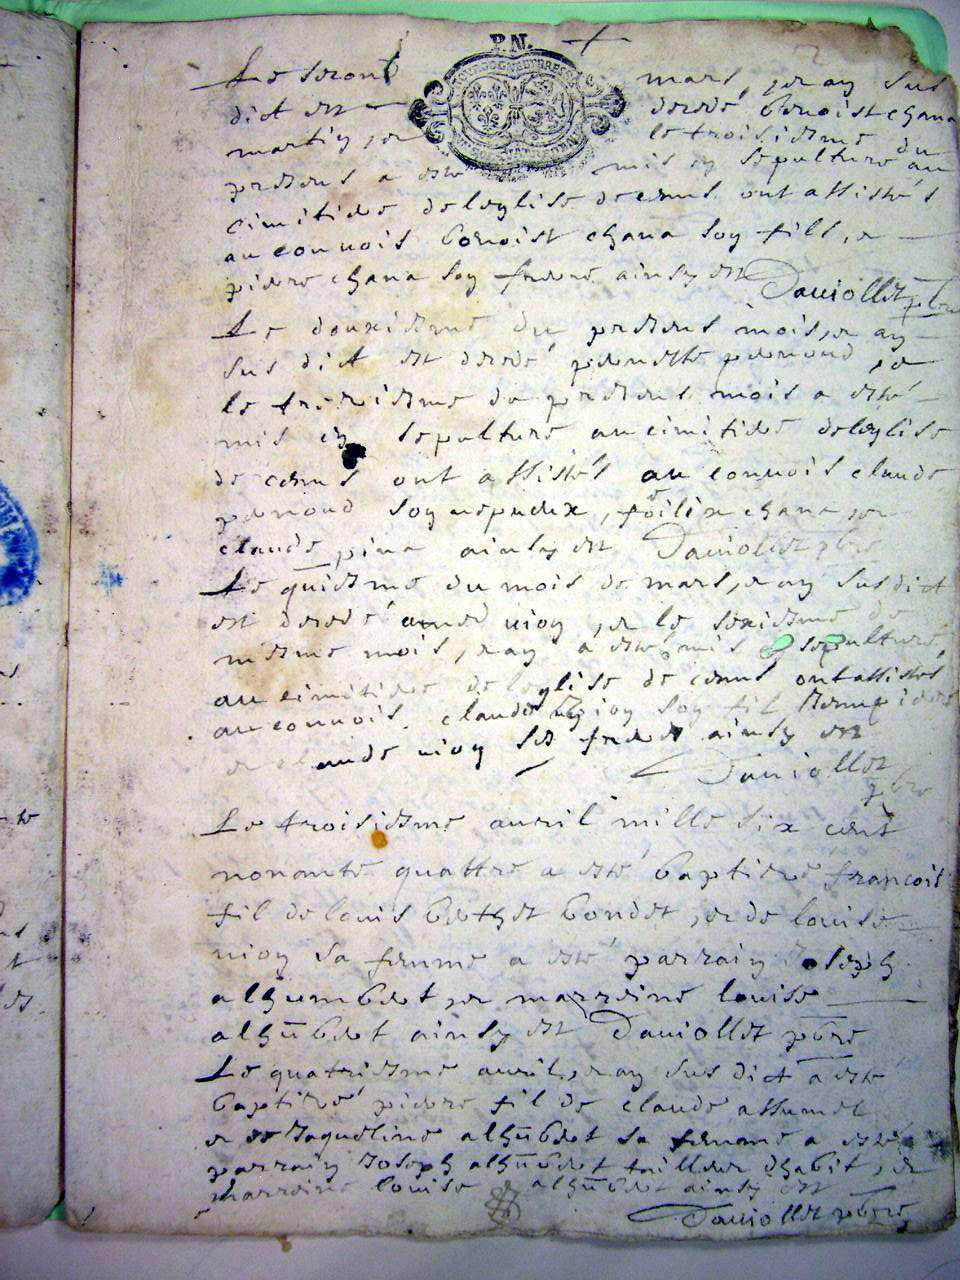 P.N.
Le second mars, et an sus
dict est decede benoist chana
martin, et le troisieme du
presens a este mis en sepulture au
cimitiere de leglise de cenns ont assistes
au convois benoist chana son fils, et
piere chana son frere ainsy est Daviollet pbre
Le douxieme du presens mois, et an
sus dict est decedé pernette pernoud, et
le treizieme du presens mois a esté
mis en sepulture au cimitiere de leglise
de cenns ont assistés au convois claude
pernoud son espeux, foilix chana, et
claude pina ainsy est Daviollet pbre
Le quinsieme du mois de mars, et an sus dict
est decedé amed vion, et le sexieme de
mesme mois, et an a esté mis sepulture,
au cimitiere de leglise de cenns ont assistes
au convois claude vion son fil
et claude vion ses freres ainsy est
Daviollet
pbre
Le troisieme avril mille six cent
nonante quattre a esté baptisé françois
fil de louis bethet bondet, et de louise
vion sa femme a esté parrain Joseph
alhumbert, et marreine louise
alhūbert ainsy est Daviollet pbre
Le quatrieme avril, et an sus dict a esté
baptisé piere fil de claude assumel
et de Jaqueline alhūbert sa femme a esté
parrain Joseph alhūbert tallieur dhabit, et
marreine louise alhūbert ainsy est
Daviollet pbre